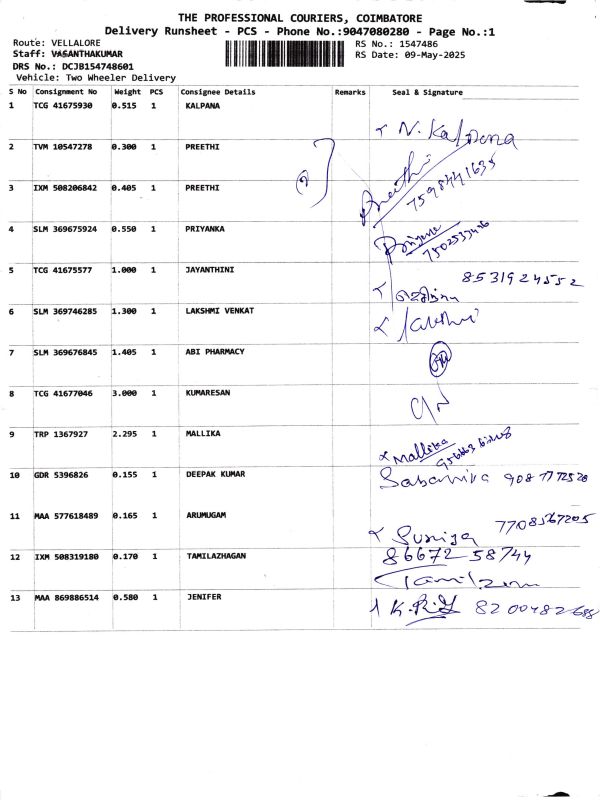 THE PROFESSIONAL COURIERS, COIMBATORE
Delivery Runsheet - PCS - Phone No.:9047080280 - Page No.:1
Route: VELLALORE
Staff: VASANTHAKUMAR
DRS No.: DCJB154748601
Vehicle: Two Wheeler Delivery
RS No.: 1547486
RS Date: 09-May-2025
S No Consignment No Weight PCS Consignee Details Remarks Seal & Signature
1 TCG 41675930 0.515 1 KALPANA N. Kalpana
2 TVM 10547278 0.300 1 PREETHI
3 IXM 508206842 0.405 1 PREETHI Preethi 7598441635
4 SLM 369675924 0.550 1 PRIYANKA
5 TCG 41675577 1.000 1 JAYANTHINI 8531924552
6 SLM 369746285 1.300 1 LAKSHMI VENKAT
7 SLM 369676845 1.405 1 ABI PHARMACY
8 TCG 41677046 3.000 1 KUMARESAN
9 TRP 1367927 2.295 1 MALLIKA Mallika
10 GDR 5396826 0.155 1 DEEPAK KUMAR
11 MAA 577618489 0.165 1 ARUMUGAM 7708567205
12 IXM 508319180 0.170 1 TAMILAZHAGAN 86672 58744
13 MAA 869886514 0.580 1 JENIFER